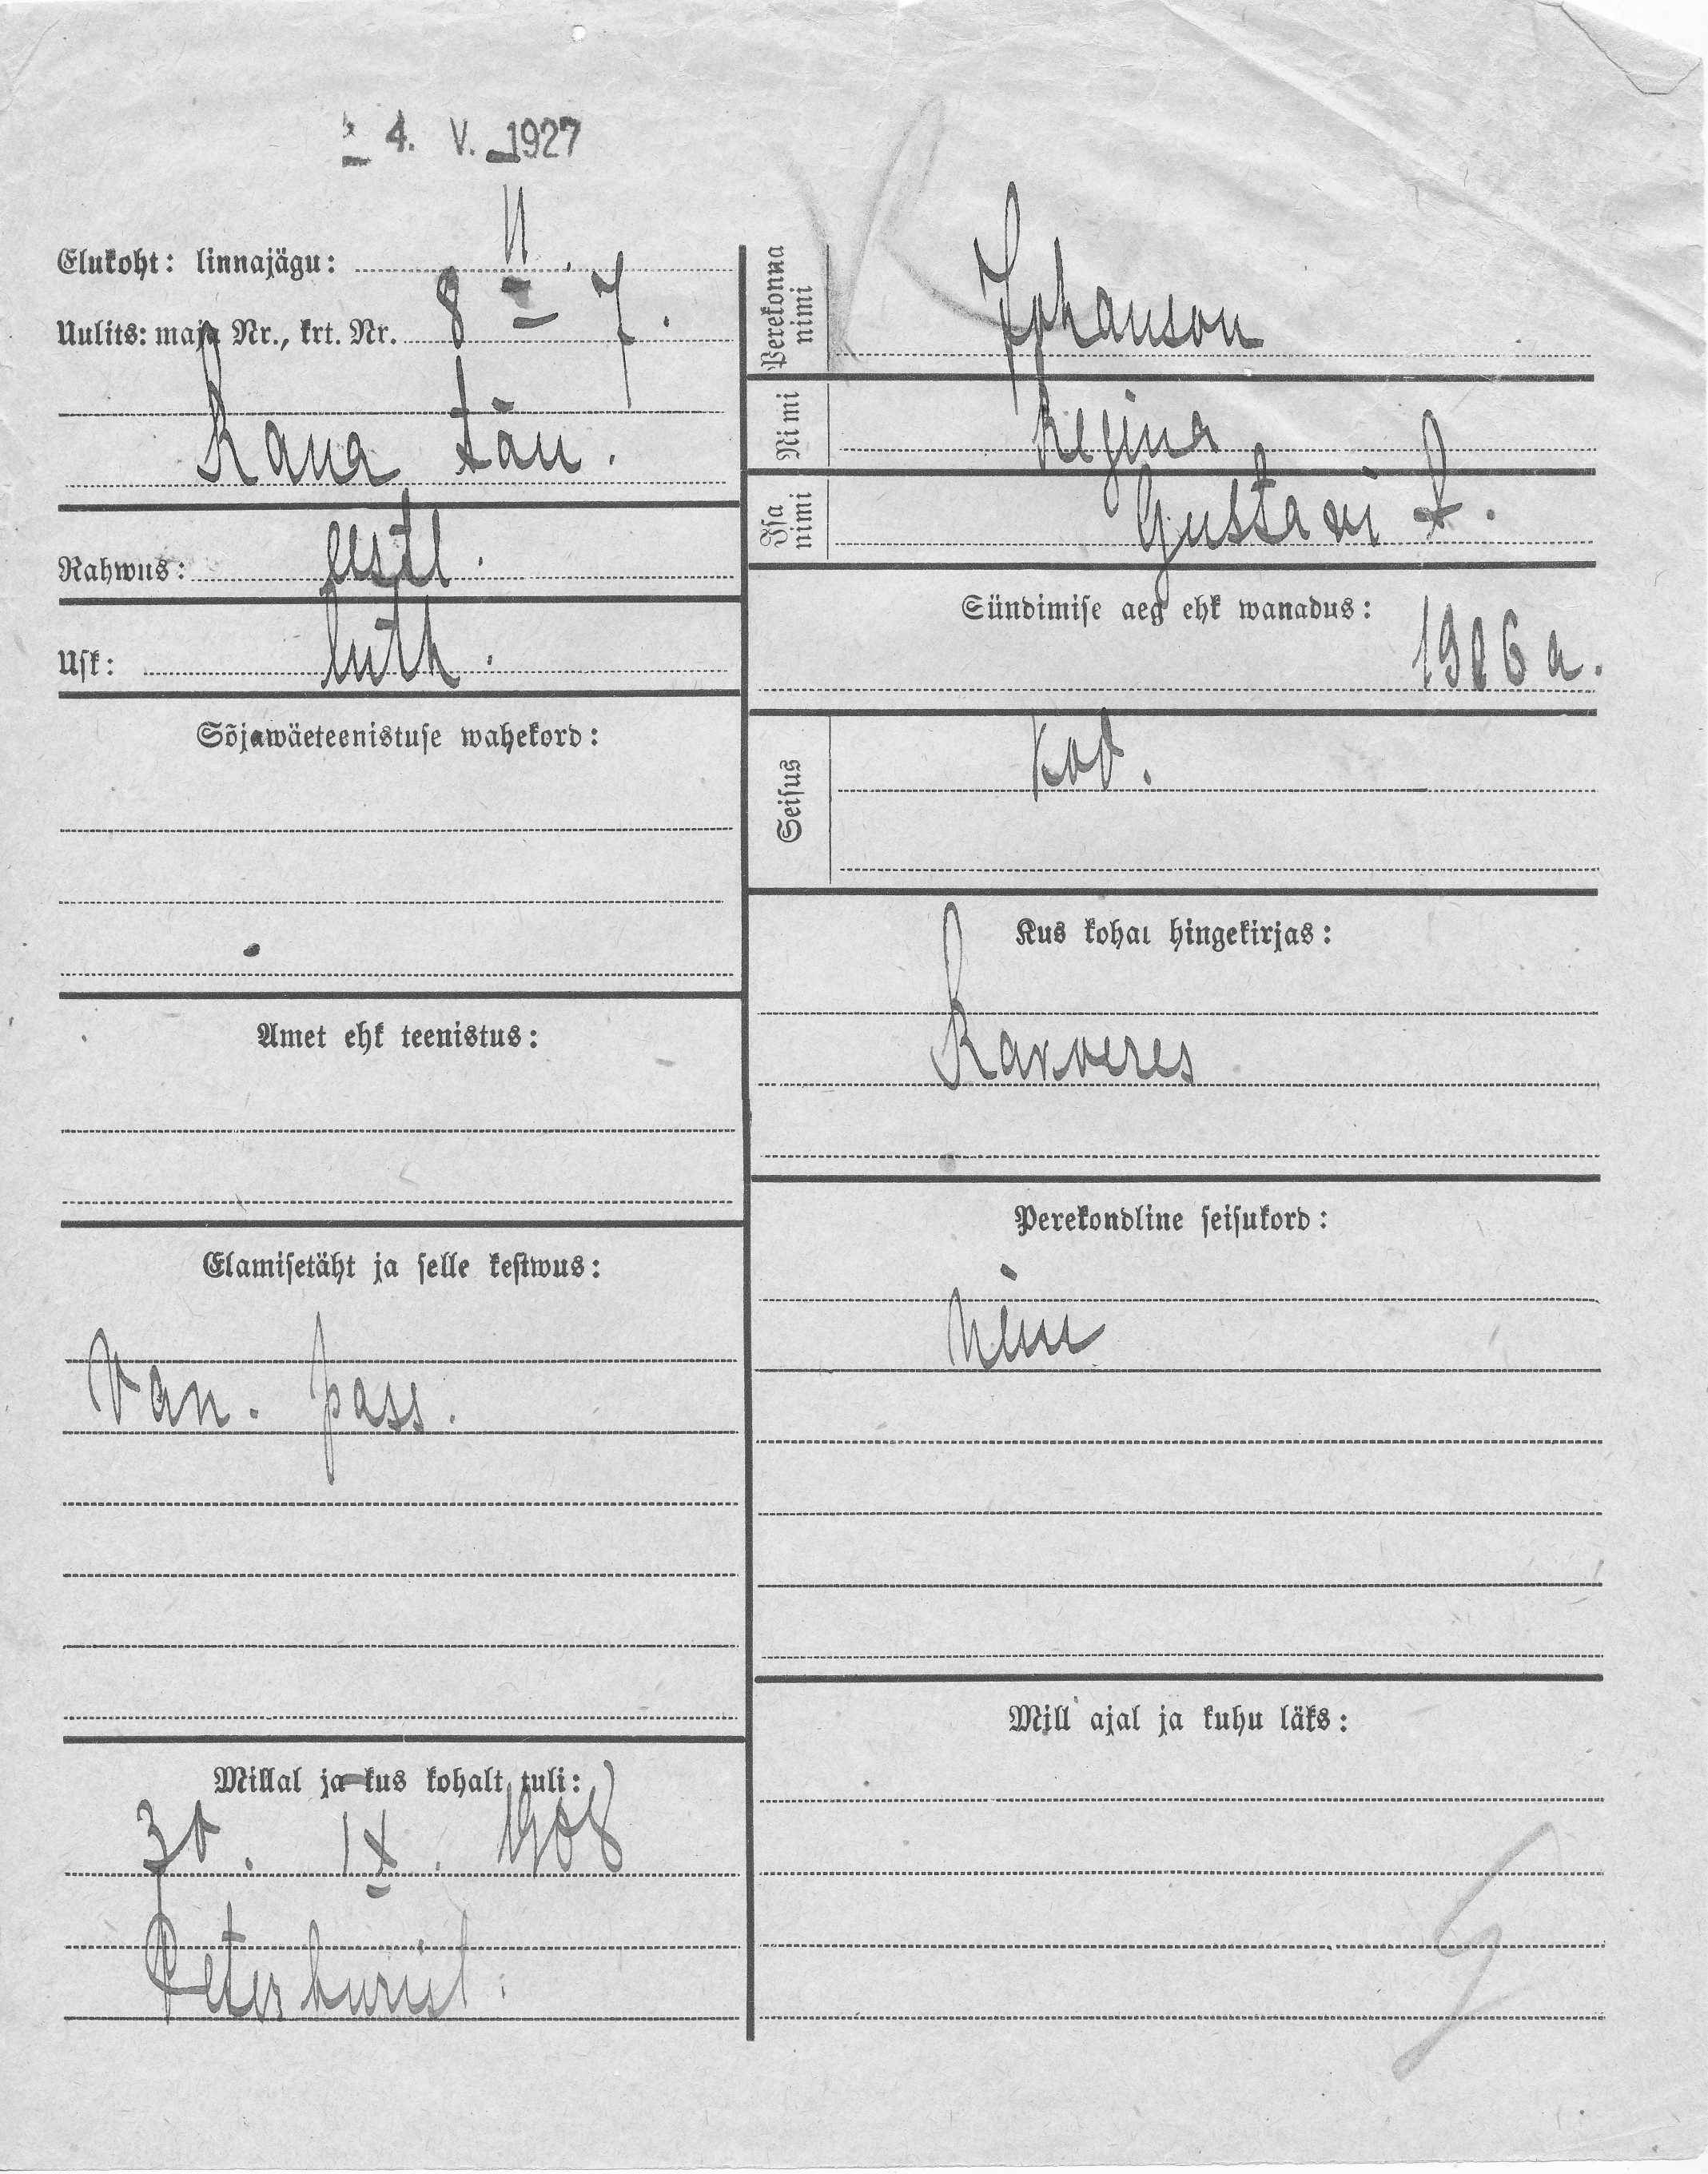 4. V. 1927
Elukoht: linnajägu: II
Uulits: maja Nr., krt. Nr. 8 – 7.
Rana tän.
Rahwus: eestl.
Usk: luth.
Sõjawäeteenistuse wahekord:
Amet ehk teenistus:
Elamisetäht ja selle kestwus:
Van. pass.
Millal ja kus kohalt tuli:
30. IX. 1908
Peterburist.
Perekonna nimi Johanson
Nimi Regina
Isa nimi Gustavi t.
Sündimise aeg ehk wanadus:
1906 a.
Seisus kod.
Kus kohal hingekirjas:
Rakveres
Perekondline seisukord:
Mill ajal ja kuhu läks: